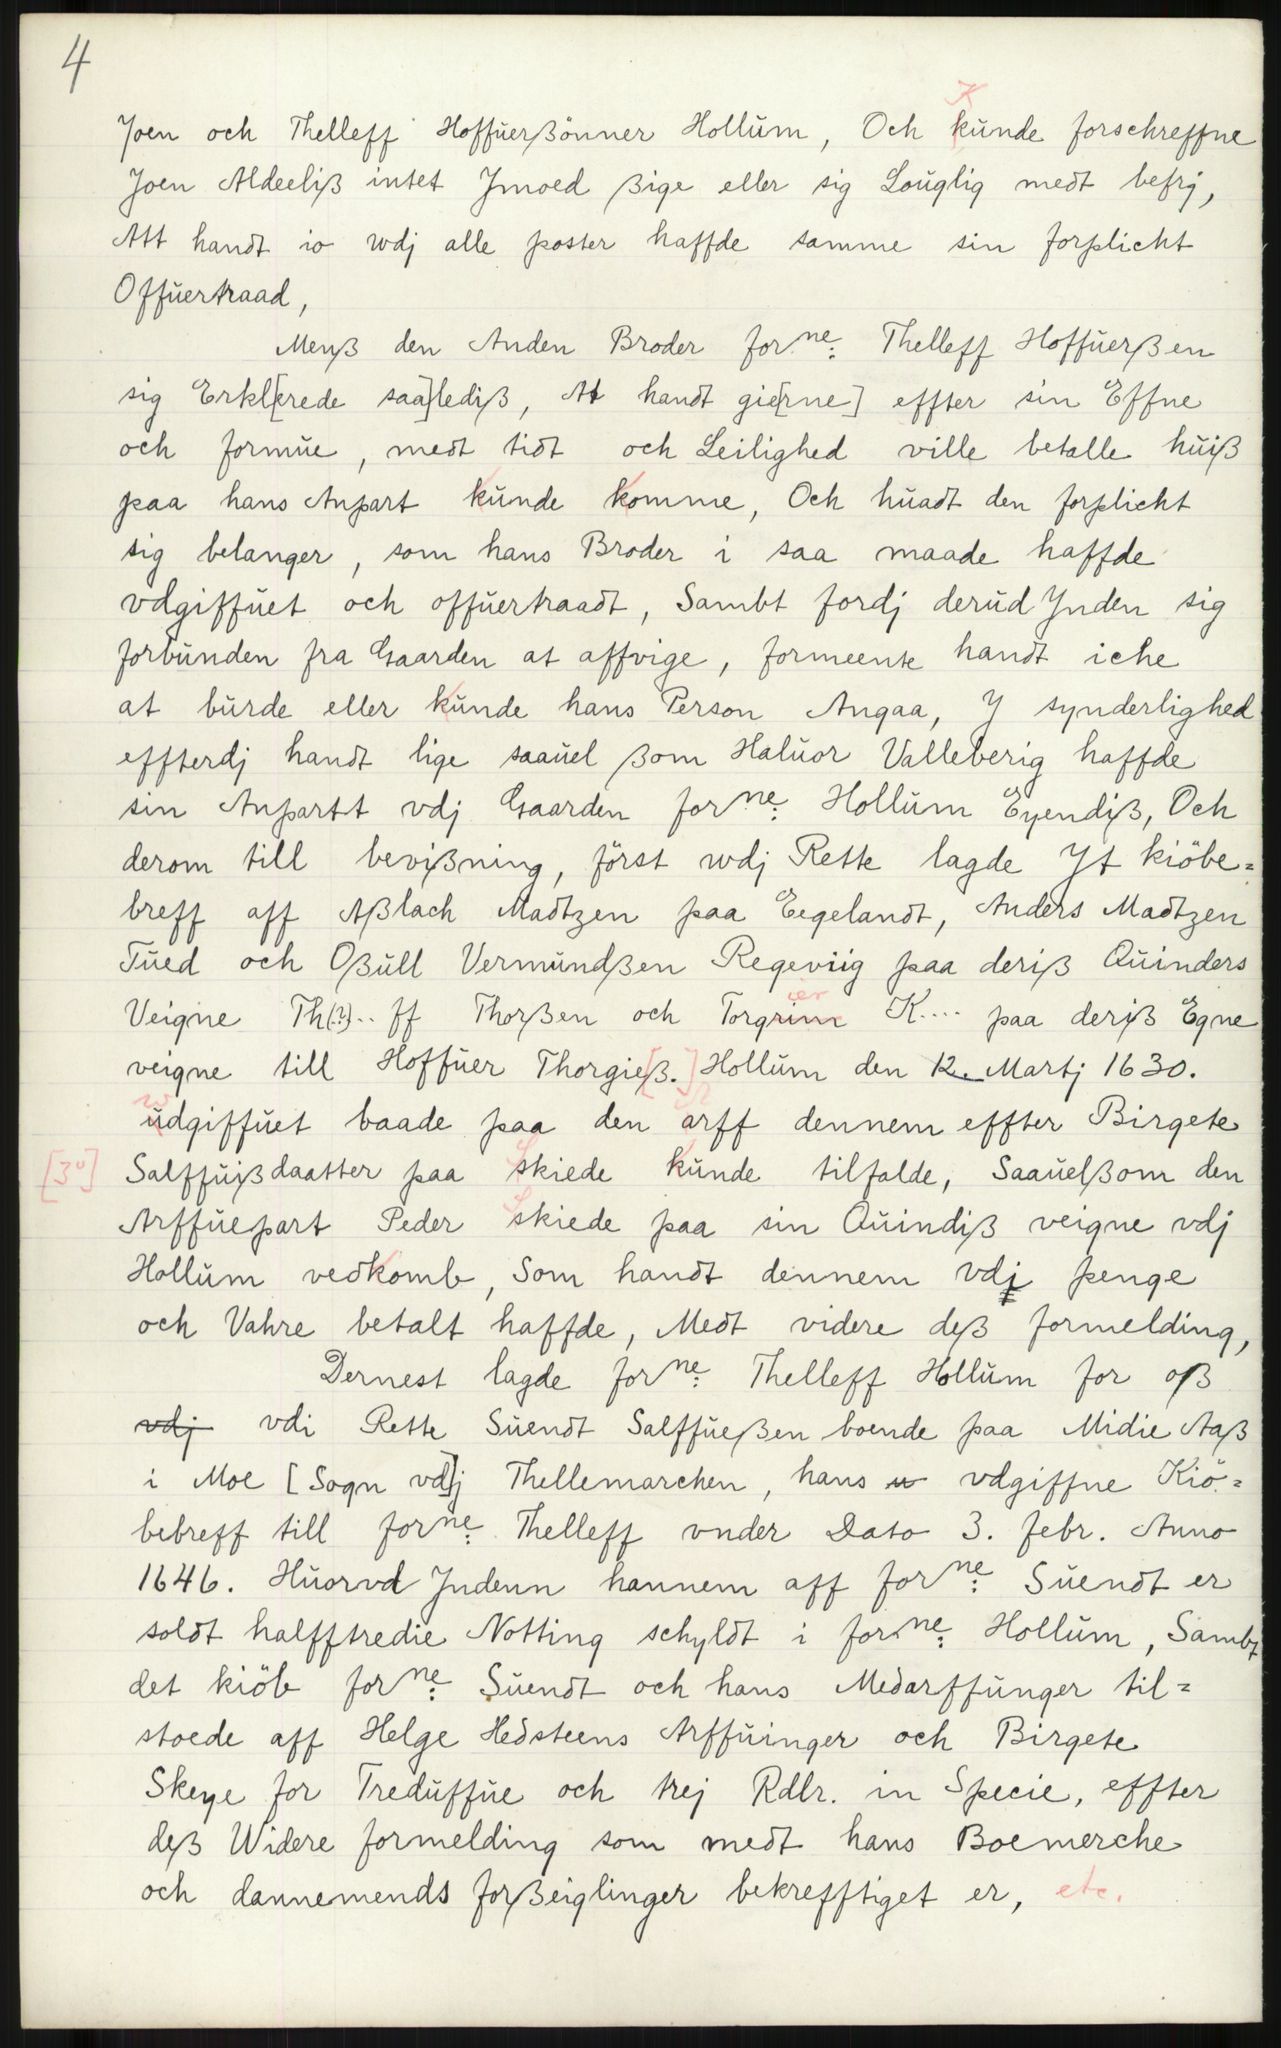 4
Joen och Thelleff Hoffuerßönner Hollum, Och Kunde forschreffne
Joen Aldeeliß intet Jmoed ßige eller sig Louglig medt befrj,
Att handt io wdj alle poster haffde samme sin forplicht
Offuertraad,
Menß den Anden Broder forne: Thelleff Hoffuerßen
sig Erkl[erede saa]lediß, At handt gie[rne] effter sin Effne
och formue, medt tidt och Leilighed ville betalle huiß
paa hans Anpart kunde komme, Och huadt den forplicht
sig belanger, som hans Broder i saa maade haffde
vdgiffuet och offuertraadt, Sambt fordj derud Jnden sig
forbunden fra Gaarden at affvige, formeente handt iche
at burde eller kunde hans Person Angaa, Y synderlighed
effterdj handt lige saauel ßom Haluor Valleberig haffde
sin Anpartt vdj Gaarden forne: Hollum Eyendiß, Och
derom till bevißning, först wdj Rette lagde Yt kiöbe=
breff aff Aßlach Madtzen paa Eegelandt, Anders Madtzen
Tued och Oßull Vermundßen Regeviig paa deriß Quinders
Veigne Th(?)..ff Thorßen och Torgrim ier K.... paa deriß Egne
veigne till Hoffuer Thorgieß[.] Hollum den 12. Martj 1630.
wdgiffuet baade paa den arff dennem effter Birgete
[3º] Salffuißdaatter paa Skiede kunde tilfalde, Saauelßom den
Arffuepart Peder Skiede paa sin Quindiß veigne vdj
Hollum vedkomb, Som handt dennem vdj penge
och Vahre betalt haffde, Medt videre deß formelding,
Dernest lagde forne: Thelleff Hollum for oß
vdj vdi Rette Suendt Salffueßen boende paa Midie Aaß
i Moe [Sogn vd]j Thellemarchen, hans u vdgiffne Kiö=
bebreff till forne: Thelleff vnder Dato 3. febr. Anno
1646. Huorvd Jndenn hannem aff forne: Suendt er
soldt halfftredie Notting schyldt i forne: Hollum, Sambt
det kiöb forne: Suendt och hans Medarffunger til=
stoede aff Helge Hedsteens Arffuinger och Birgete
Skeye for Treduffue och trej Rdlr. in Specie, effter
deß Widere formelding som medt hans Boemerche
och dannemends forßeiglinger bekrefftiget er, etc.